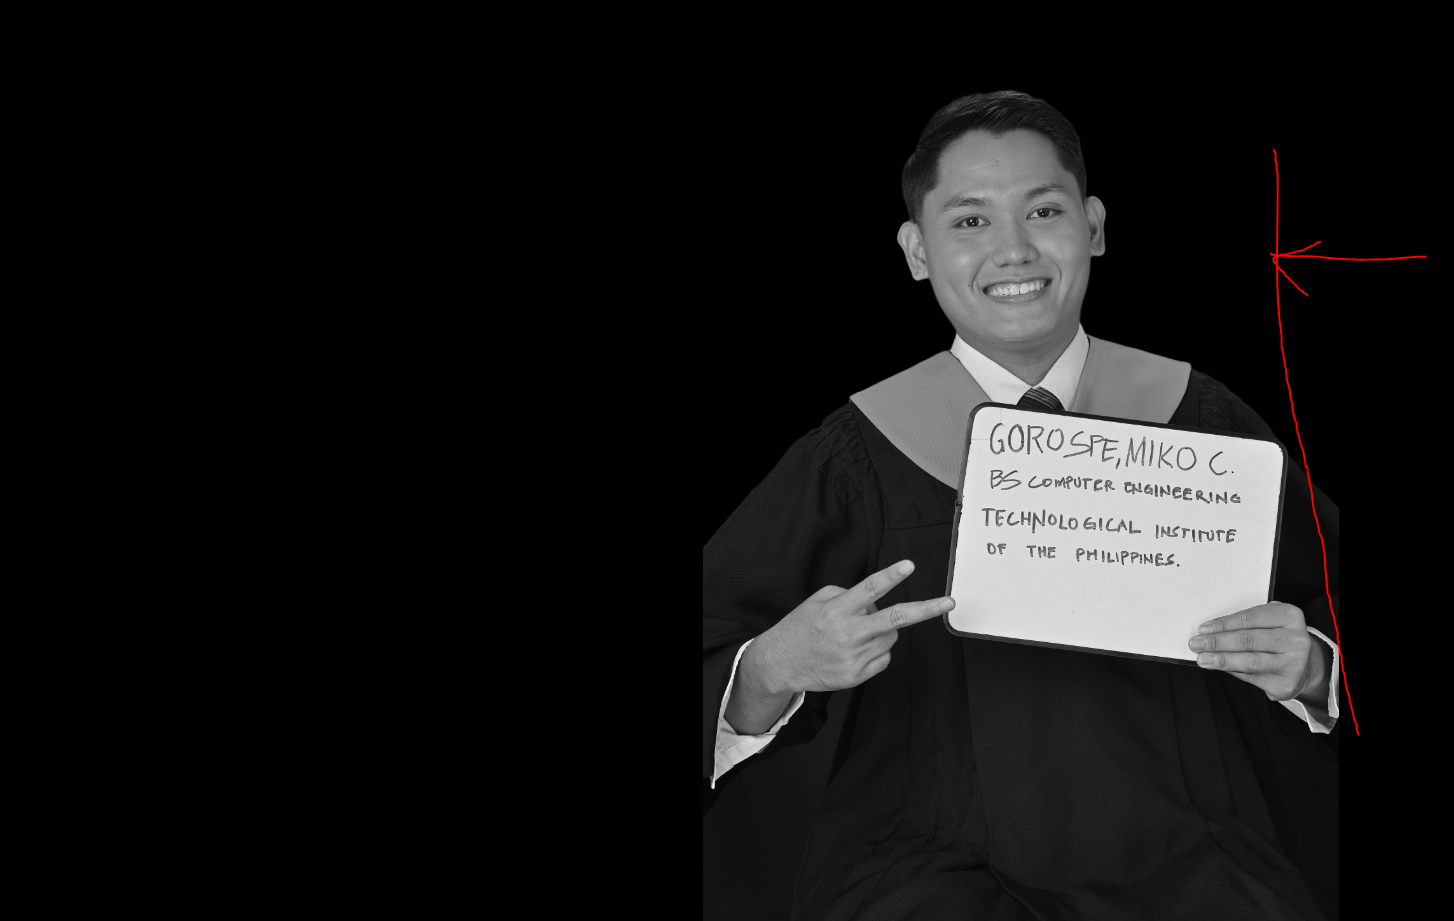 GOROSPE, MIKO C.
BS COMPUTER ENGINEERING
TECHNOLOGICAL INSTITUTE
OF THE PHILIPPINES.